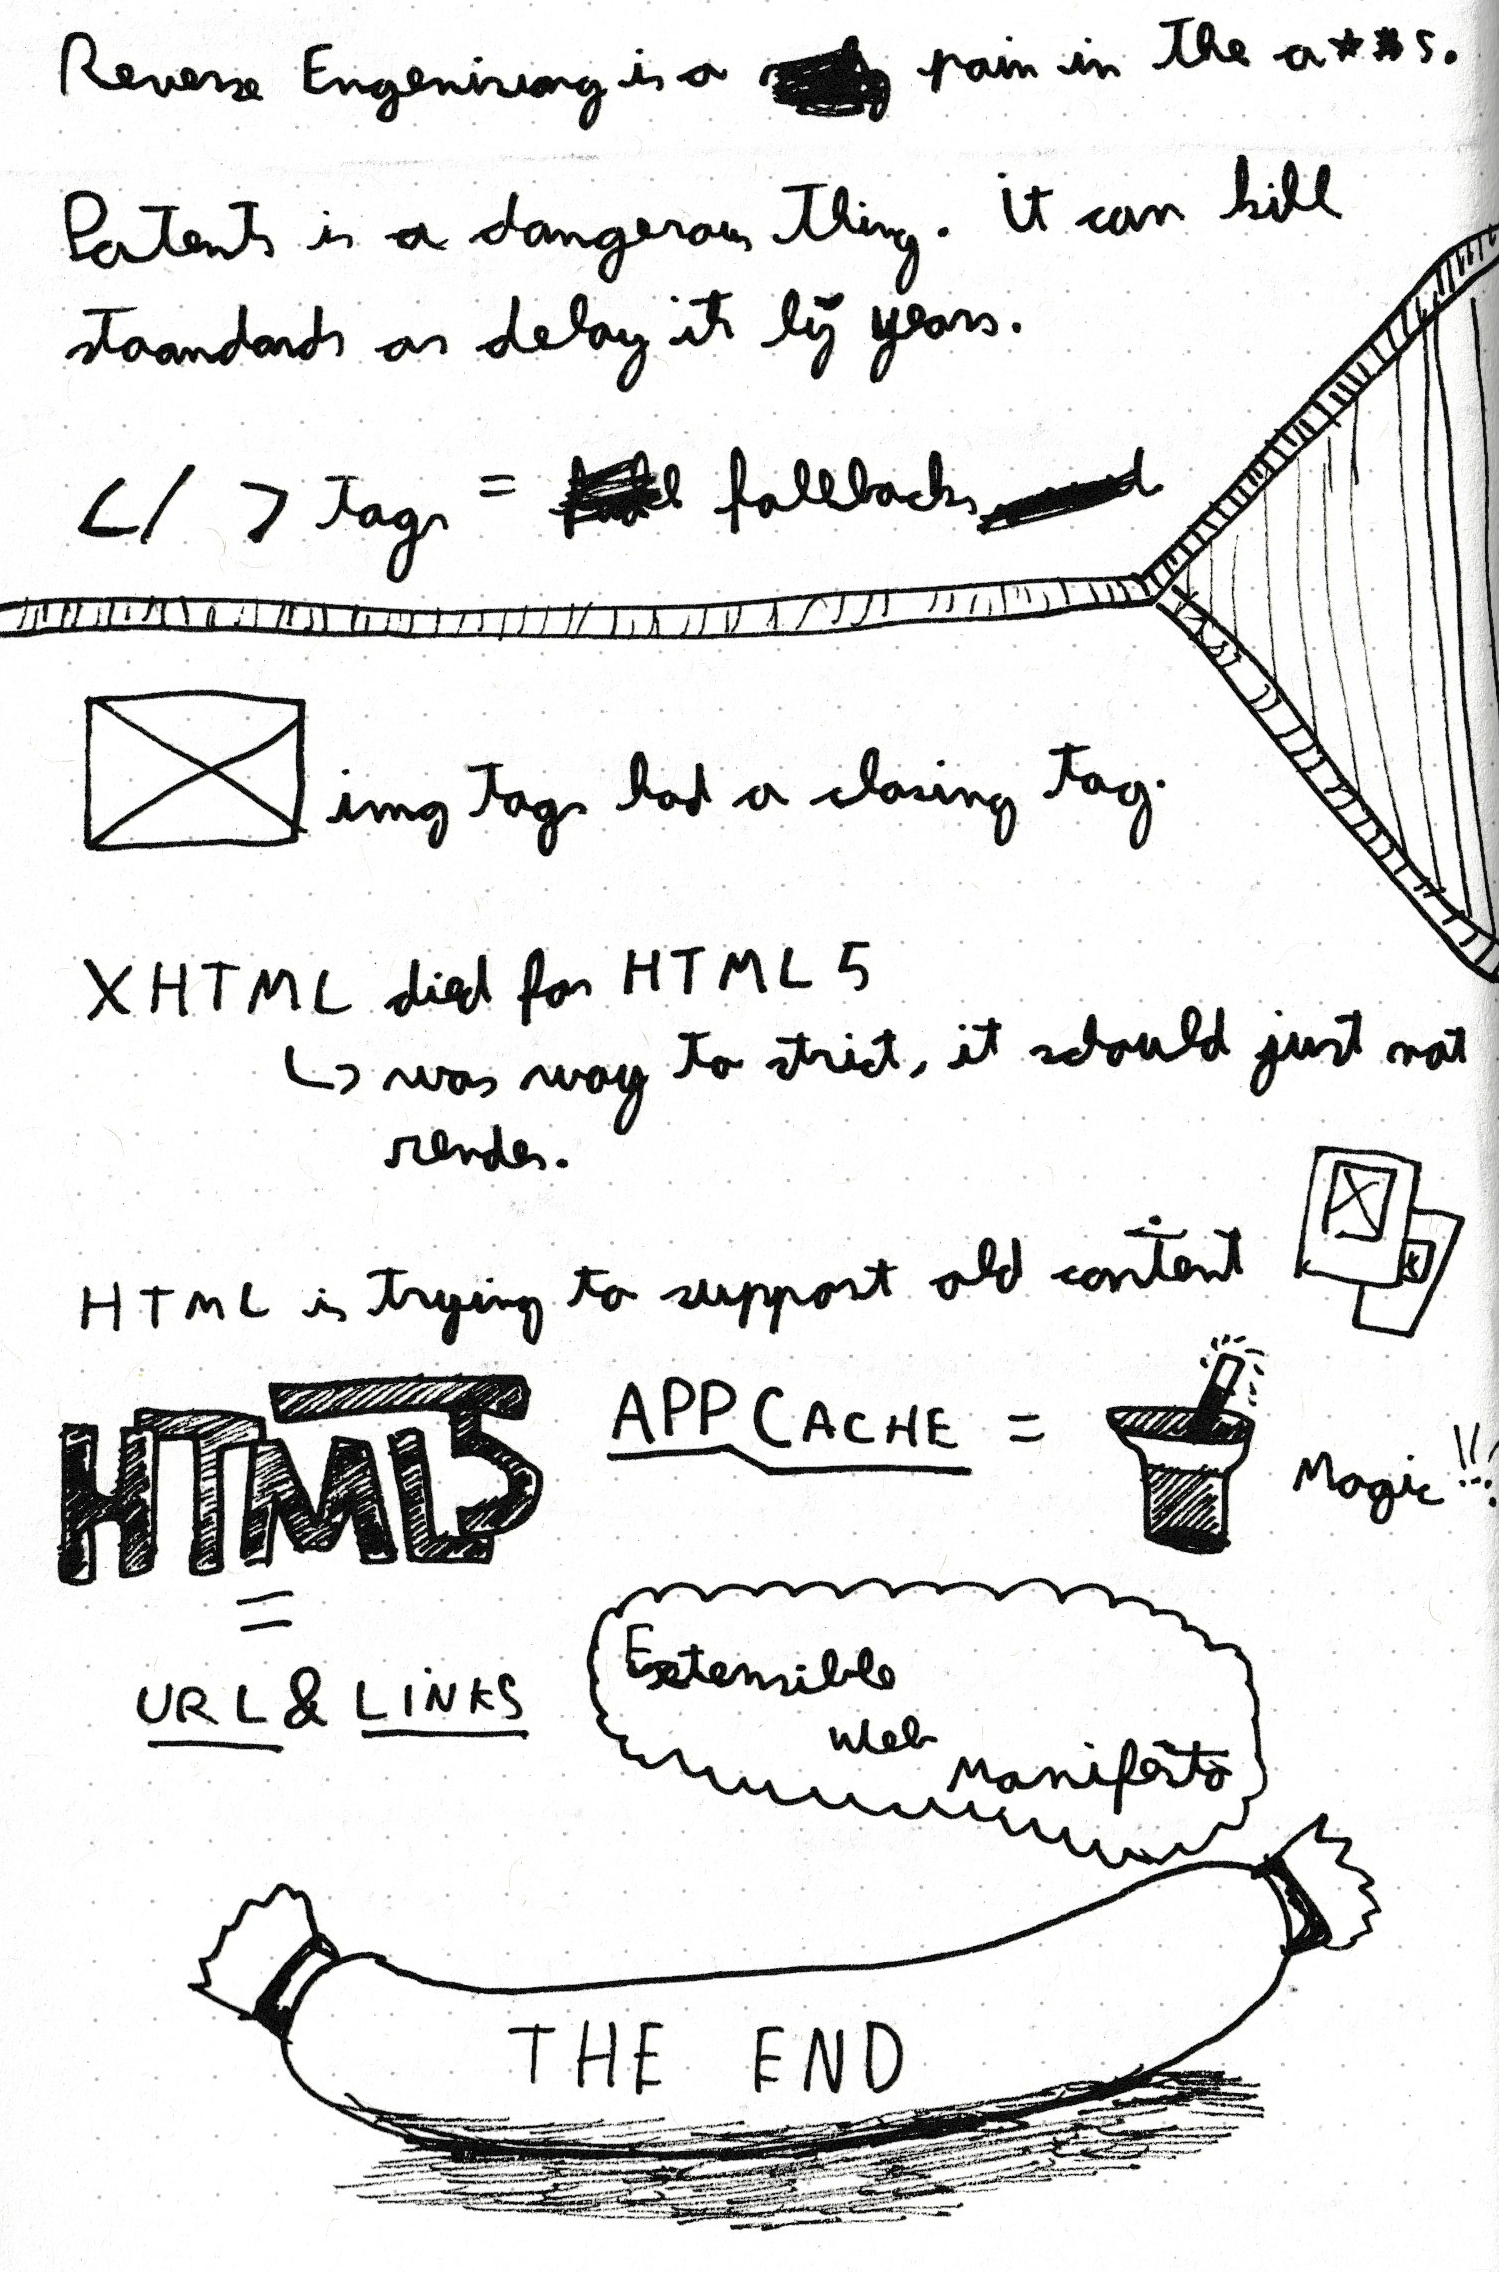 Reverse Engenising is a pain in the a***s.
Patents is a dangerous thing. it can kill
staandards or delay it by years.
</ > tags = fallbacks
img tags had a closing tag.
XHTML died for HTML5
↳ was way to strict, it should just not
render.
HTML is trying to support old content
HTML5
APPCACHE = Magic !!!
=
URL & LINKS
Extensible
web
Manifesto
THE END